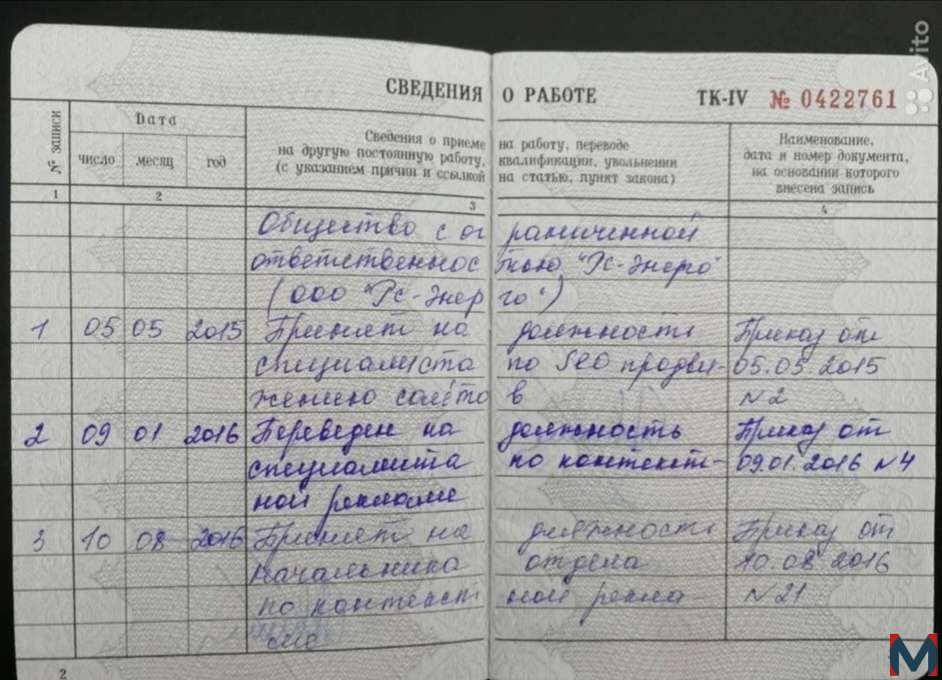 СВЕДЕНИЯ О РАБОТЕ ТК-IV № 0422761
№ записи
Дата
число месяц год
Сведения о приеме на работу, переводе
на другую постоянную работу, квалификации, увольнении
(с указанием причин и ссылкой на статью, пункт закона)
Наименование,
дата и номер документа,
на основании которого
внесена запись
1 2 3 4
Общество с ограниченной
ответственностью "Рс-Энерго"
(ООО "Рс-Энерго")
1 05 05 2015 Принят на должность Приказ от
специалиста по SEO продви- 05.05.2015
жению сайтов №2
2 09 01 2016 Переведен на должность Приказ от
специалиста по контекст- 09.01.2016 №4
ной рекламе
3 10 08 2016 Принят на должность Приказ от
начальника отдела 10.08.2016
по контекстной рекла- №21
2
Avito
M